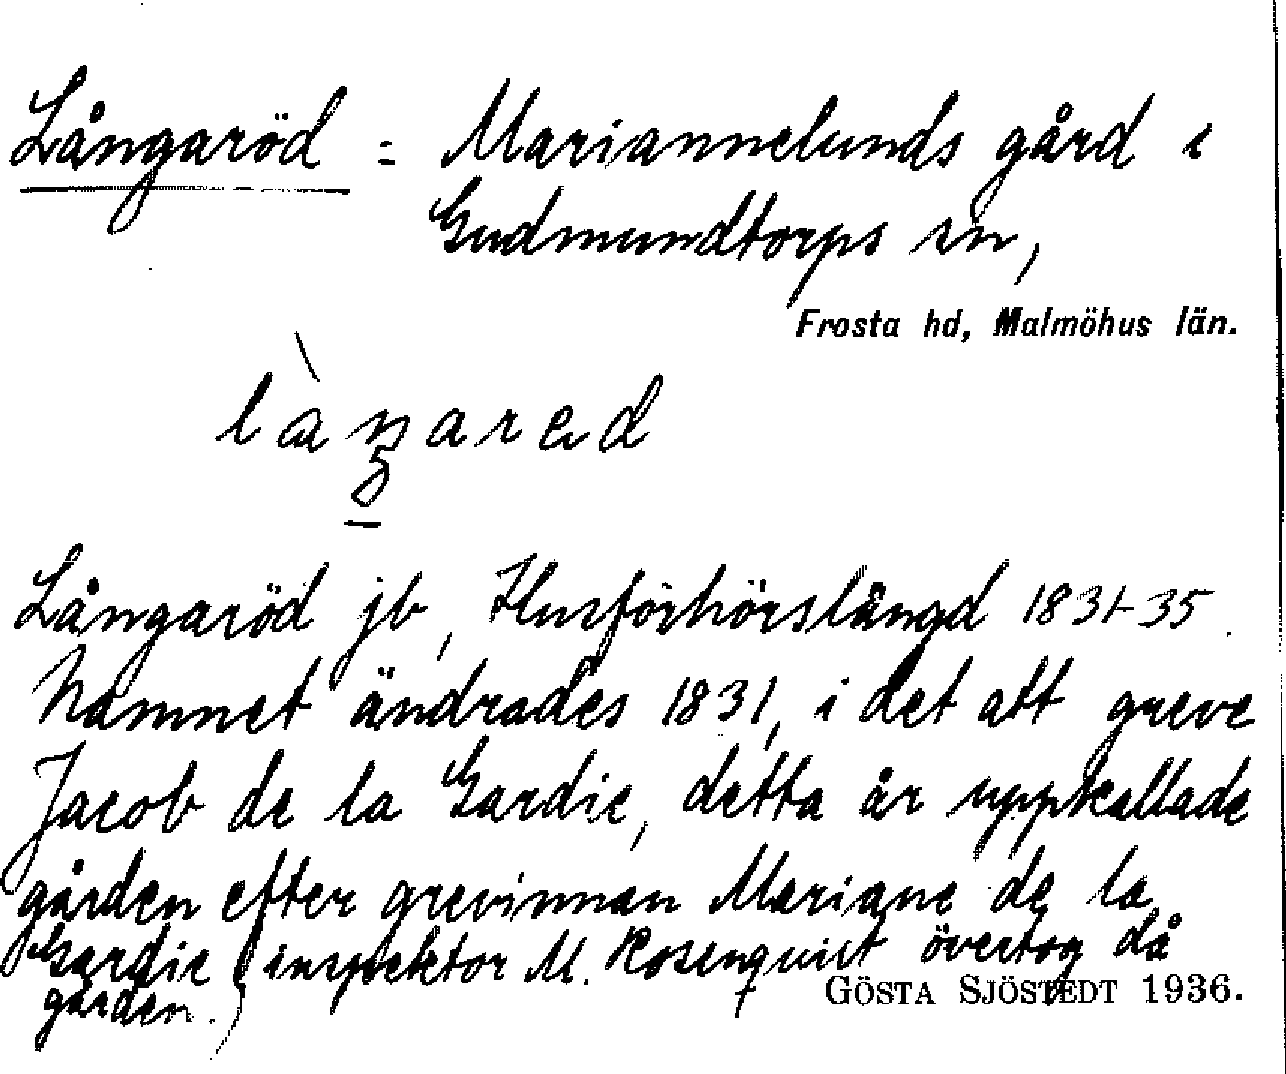 Långaröd = Mariannelunds gård i
Gudmundtorps sn,
Frosta hd, Malmöhus län.
Långaröd jb, Husförhörslängd 1831-35.
Namnet ändrades 1831, i det att greve
Jacob de la Gardie, detta år uppkallade
gården efter grevinnan Mariane de la
Gardie (inspektor M. Rosenquist övertog då
gården.)
GÖSTA SJÖSTEDT 1936.